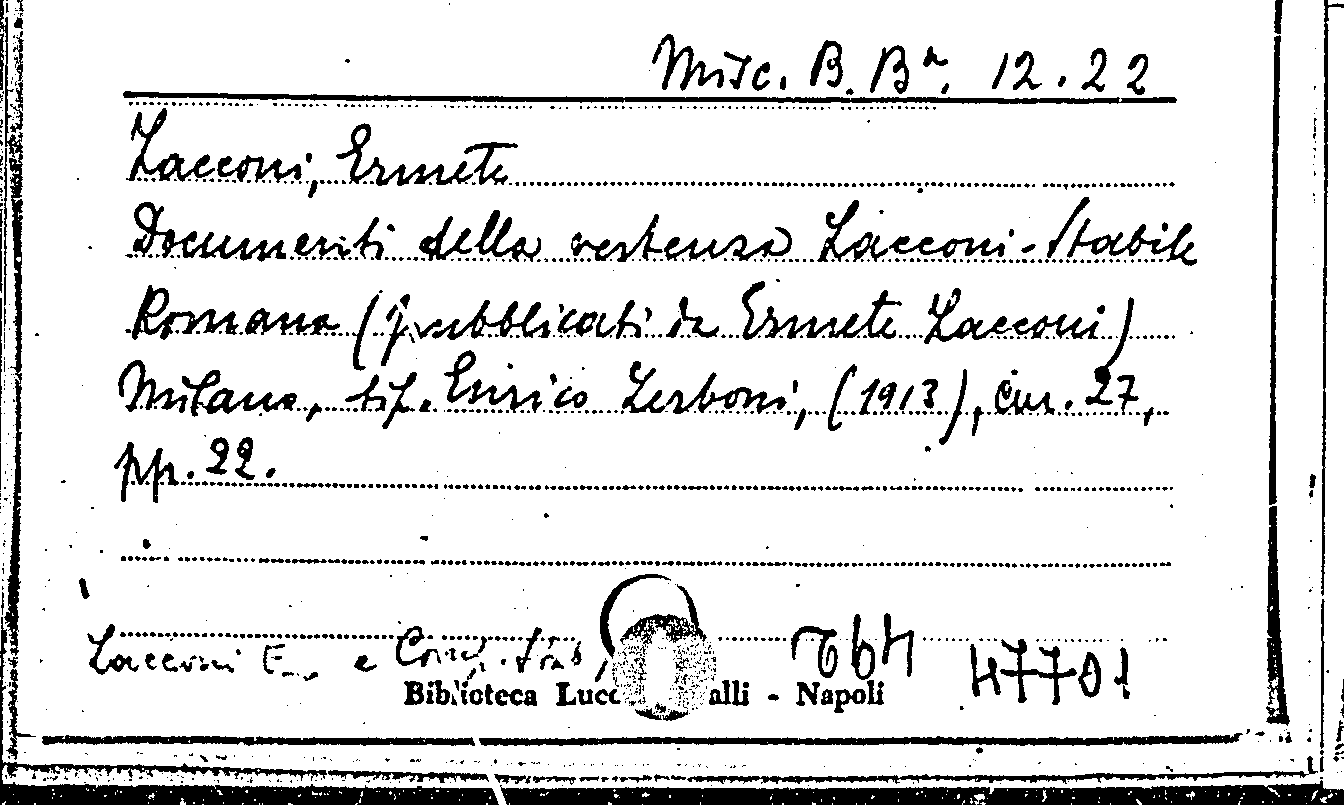 Misc. B. Bª. 12.22
Zacconi, Ermete
Documenti della vertenza Zacconi-Stabile
Romana (pubblicati da Ermete Zacconi)
Milano, tip. Enrico Zerboni, (1913), cm. 27,
pp. 22.
Zacconi E. e
47701
Biblioteca Lucc alli - Napoli